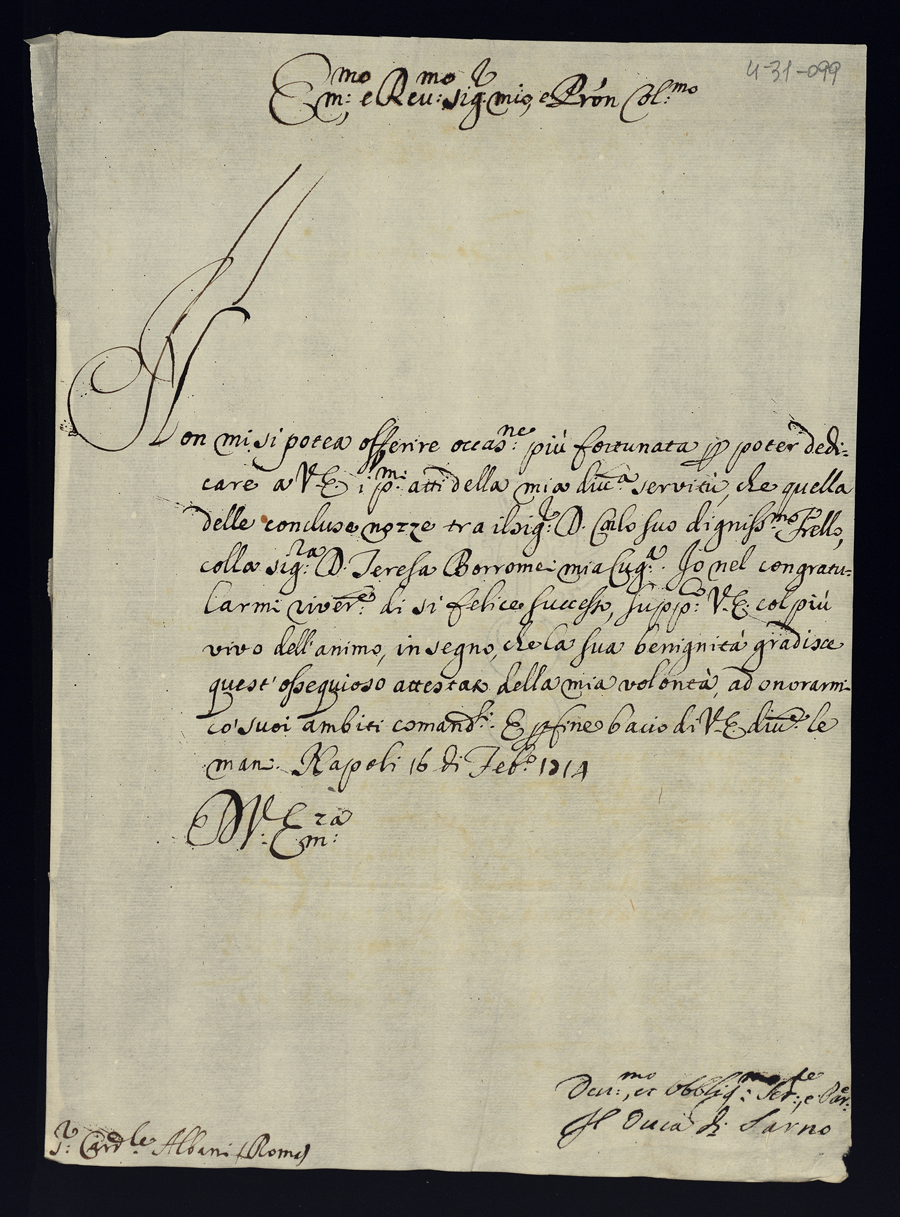 4-31-099
Em:mo e Reu:mo sig:r mio, e Pron Col:mo
Non mi si potea offerire occas:ne più fortunata p poter dedi-
care a V. E. i p:mi atti della mia diu:a servitù, che quella
delle concluse nozze tra il sig:r D. Carlo suo digniss:mo Frello,
colla sig:ra D. Teresa Borromei mia Cug:a. Io nel congratu-
larmi viver:e di si felice successo, supp:co V. E. col più
vivo dell'animo, in segno, che la sua benignità gradisce
quest'ossequioso attestato della mia volontà, ad onorarmi
co' suoi ambiti comand:i. E p fine bacio di V. E. diu:te le
man:. Napoli 16 di Feb:o 1714
D V. Em:za
Deu:mo, et obblig:mo Ser:re, e Par:
Il Duca di Sarno
S:r Card:le Albani (Roma)